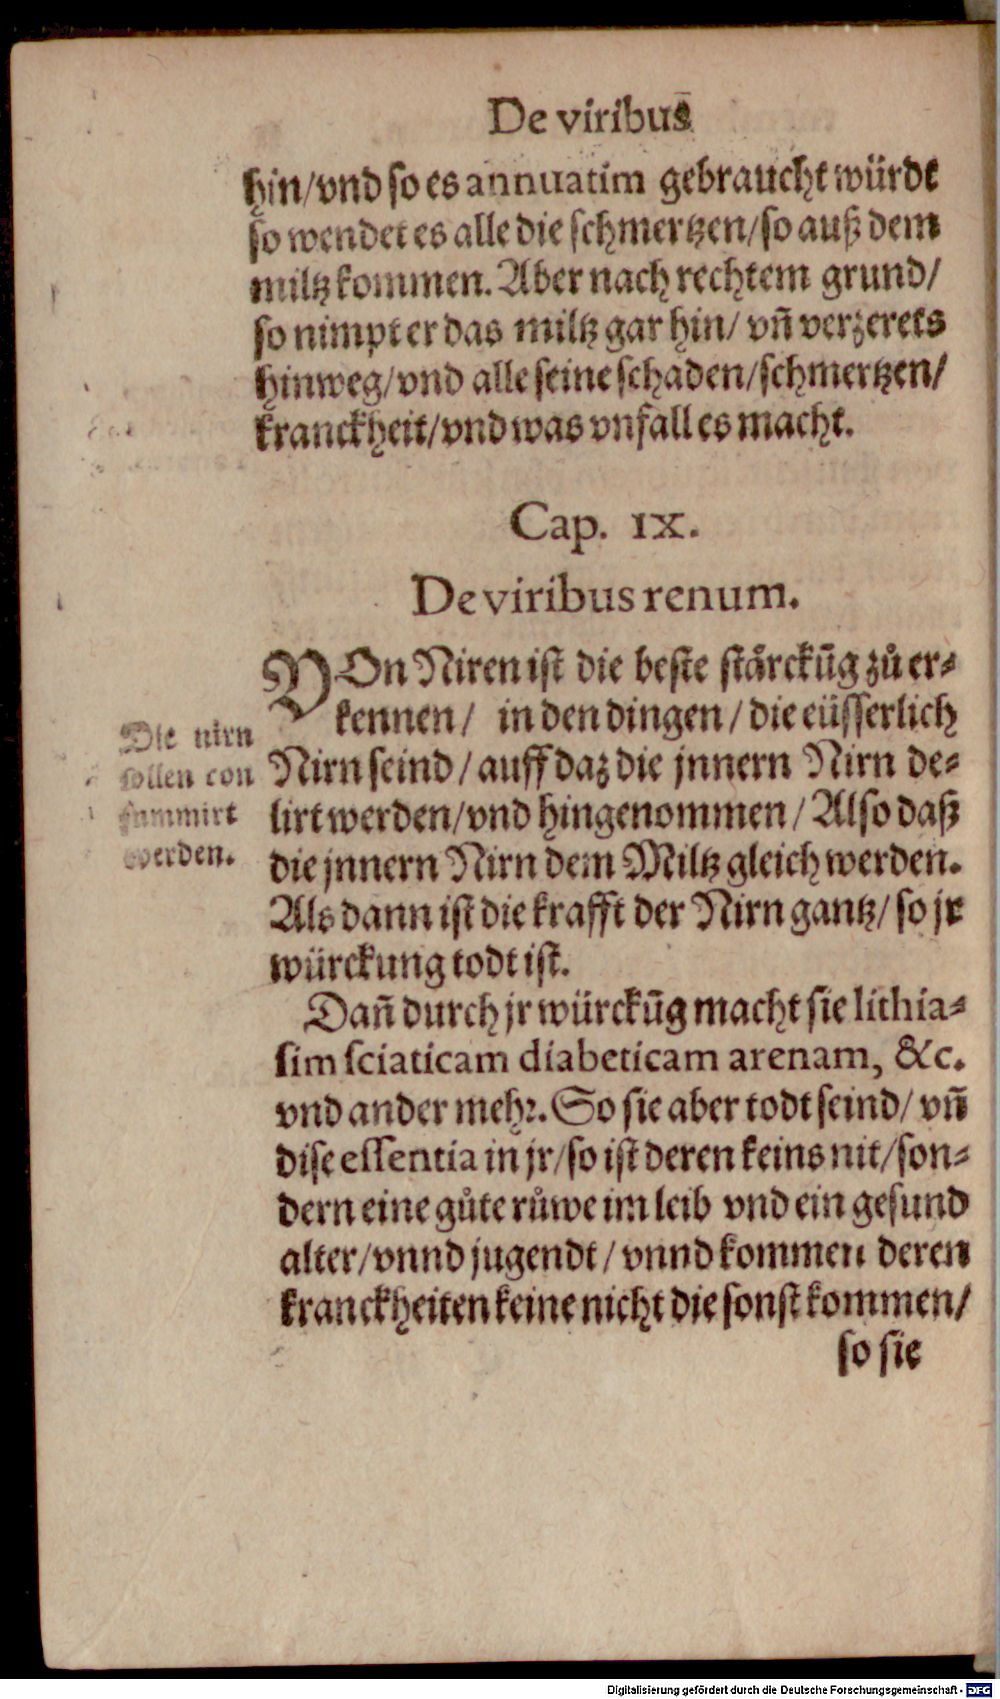 De viribus
hin/vnd so es annuatim gebraucht würdt
so wendet es alle die schmertzen/so auß dem
miltz kommen. Aber nach rechtem grund/
so nimpt er das miltz gar hin/ vn̄ verzerets
hinweg/vnd alle seine schaden/schmertzen/
kranckheit/vnd was vnfall es macht.
Cap. IX.
De viribus renum.
VOn Niren ist die beste stårckūg zů er-
kennen/ in den dingen/die eüsserlich
Nirn seind/auff daz die jnnern Nirn de-
lirt werden/vnd hingenommen/Also daß
die jnnern Nirn dem Miltz gleich werden.
Als dann ist die krafft der Nirn gantz/so jr
würckung todt ist.
Die nirn
sollen con
summirt
werden.
Dan̄ durch jr würckūg macht sie lithia-
sim sciaticam diabeticam arenam, &c.
vnd ander mehr. So sie aber todt seind/vn̄
dise essentia in jr/so ist deren keins nit/son-
dern eine gůte růwe im leib vnd ein gesund
alter/vnnd jugendt/vnnd kommen deren
kranckheiten keine nicht die sonst kommen/
so sie
Digitalisierung gefördert durch die Deutsche Forschungsgemeinschaft - DFG